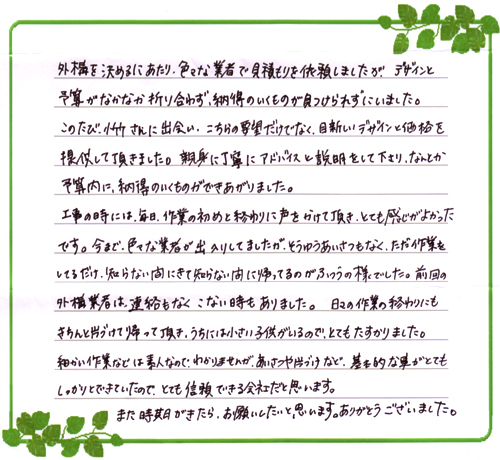 外構を決めるにあたり、色々な業者で見積もりを依頼しましたが デザインと
予算がなかなか折り合わず、納得のいくものが見つけられずにいました。
このたび、さんに出会い、こちらの要望だけでなく、目新しいデザインと価格を
提供して頂きました。親身に丁寧にアドバイスと説明をして下さり、なんとか
予算内に、納得のいくものができあがりました。
工事の時には、毎日、作業の初めと終わりに声をかけて頂き、とても感じがよかった
です。今まで、色々な業者が出入りしてましたが、そうゆうあいさつもなく、ただ作業を
してるだけ、知らない間にきて知らない間に帰ってるのがふつうの様でした。前回の
外構業者は、連絡もなく こない時もありました。 日々の作業の終わりにも
きちんと片づけて帰って頂き、うちには小さい子供がいるので、とてもたすかりました。
細かい作業などは素人なので、わかりませんが、あいさつや片づけなど、基本的な事がとても
しっかりとできていたので、とても信頼できる会社だと思います。
また時期がきたら、お願いしたいと思います。ありがとうございました。